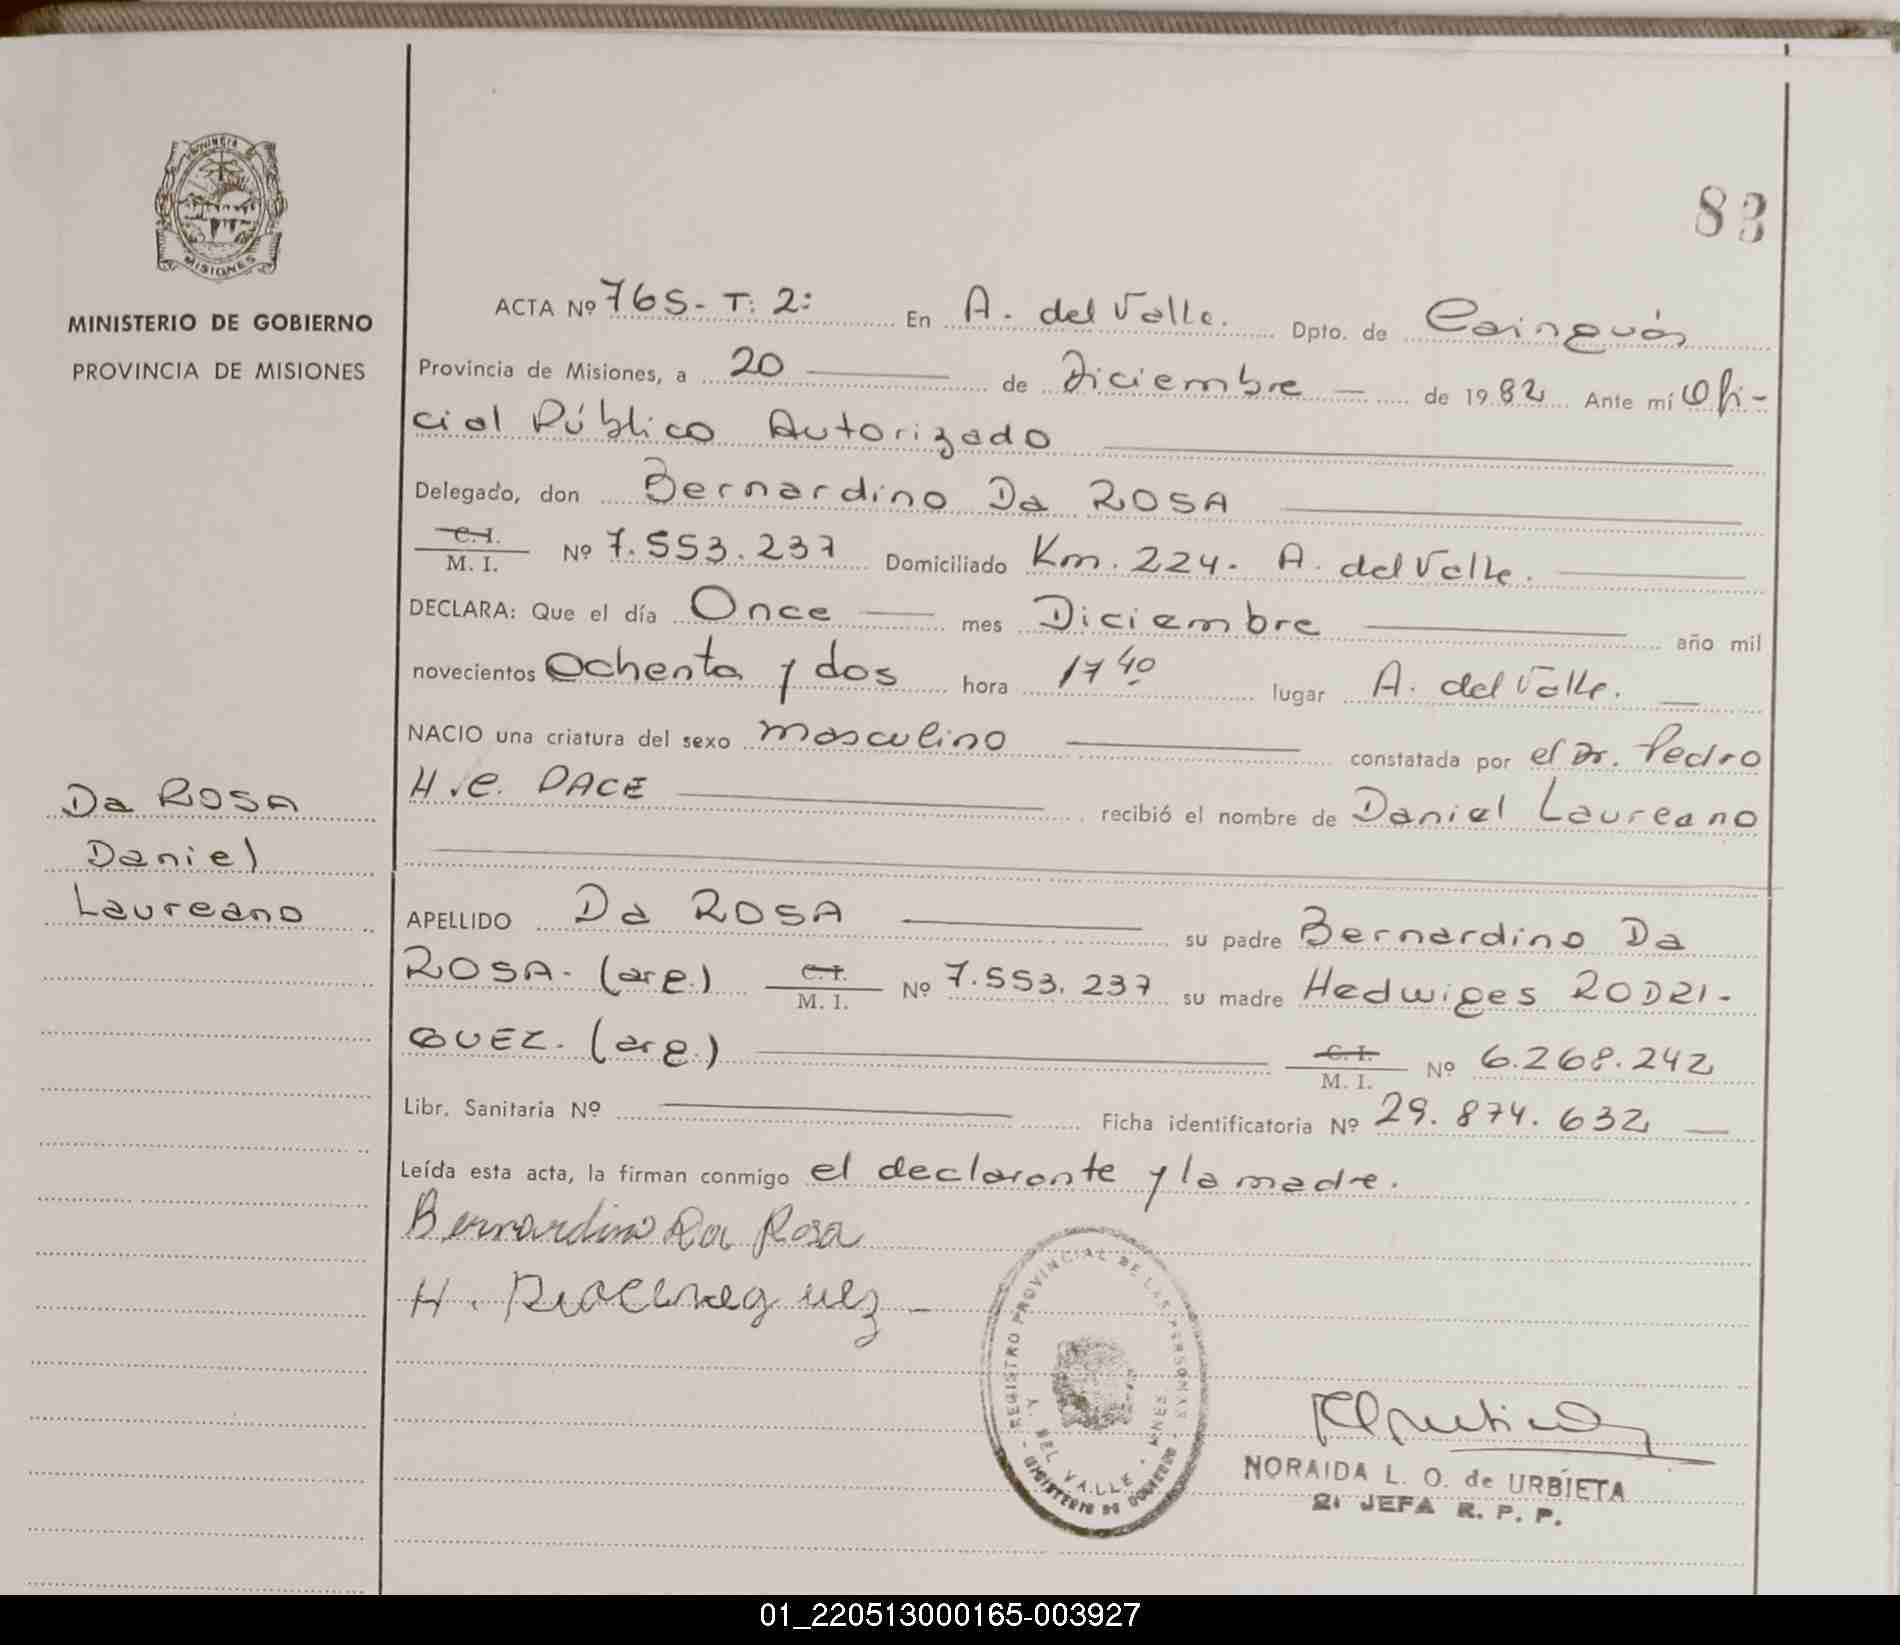 PROVINCIA DE
MISIONES
MINISTERIO DE GOBIERNO
PROVINCIA DE MISIONES
83
ACTA Nº 765- T: 2: En A. del Valle. Dpto. de Cainguás
Provincia de Misiones, a 20 de Diciembre de 1982 Ante mí Ofi-
cial Público Autorizado
Delegado, don Bernardino Da ROSA
C.I.
M. I. Nº 7.553.237 Domiciliado Km. 224. A. del Valle.
DECLARA: Que el día Once mes Diciembre año mil
novecientos Ochenta y dos hora 17 40 lugar A. del Valle.
NACIO una criatura del sexo masculino constatada por el Dr. Pedro
H.C. PACE recibió el nombre de Daniel Laureano
Da ROSA
Daniel
Laureano
APELLIDO Da ROSA su padre Bernardino Da
ROSA. (arg.) C.I. M. I. Nº 7.553.237 su madre Hedwiges RODRI-
GUEZ. (arg.) C.I. M. I. Nº 6.268.242
Libr. Sanitaria Nº Ficha identificatoria Nº 29.874.632
Leída esta acta, la firman conmigo el declarante y la madre.
Bernardino Da Rosa
H.
REGISTRO PROVINCIAL DE LAS PERSONAS
A. DEL VALLE - MNES
MINISTERIO DE GOBIERNO
NORAIDA L. O. de URBIETA
2ª JEFA R. P. P.
01_220513000165-003927